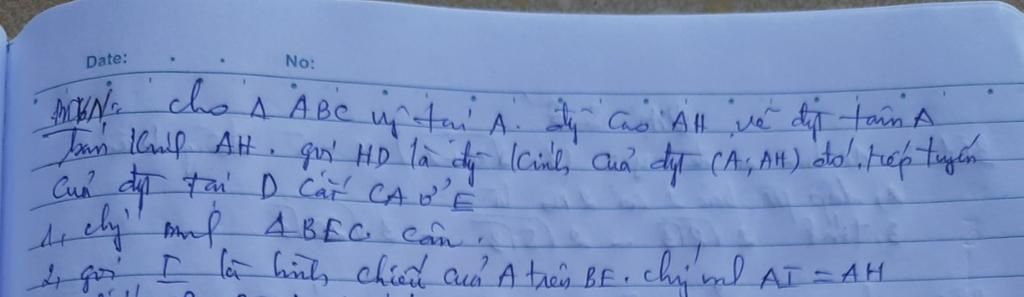 Date: No:
cho Δ ABC vg tại A. đg cao AH vẽ đgt tâm A
bán kính AH. gọi HD là đg kính của đgt (A; AH) đó. tiếp tuyến
của đgt tại D cắt CA ở E
1, chg minh Δ BEC cân.
2, gọi I là hình chiếu của A trên BE. chg minh AI = AH